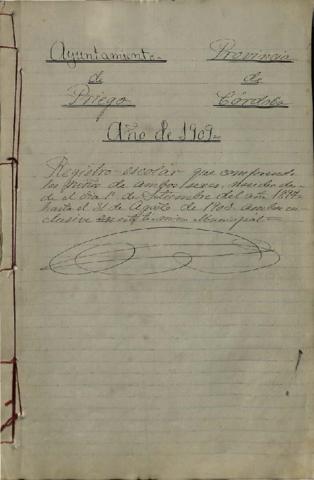 Ayuntamiento Provincia
de de
Priego Córdoba
Año de 1909.
Registro escolar que comprende
los niños de ambos sexos, nacidos des-
de el dia 1º de Setiembre del año 1897
hasta el 31 de Agosto de 1903 ambos in-
clusive en este término Municipal.=